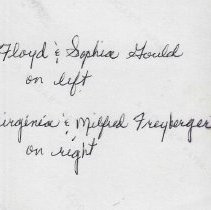 Floyd & Sophia Gould
on left
irginia & Milfred Freyberger
on right